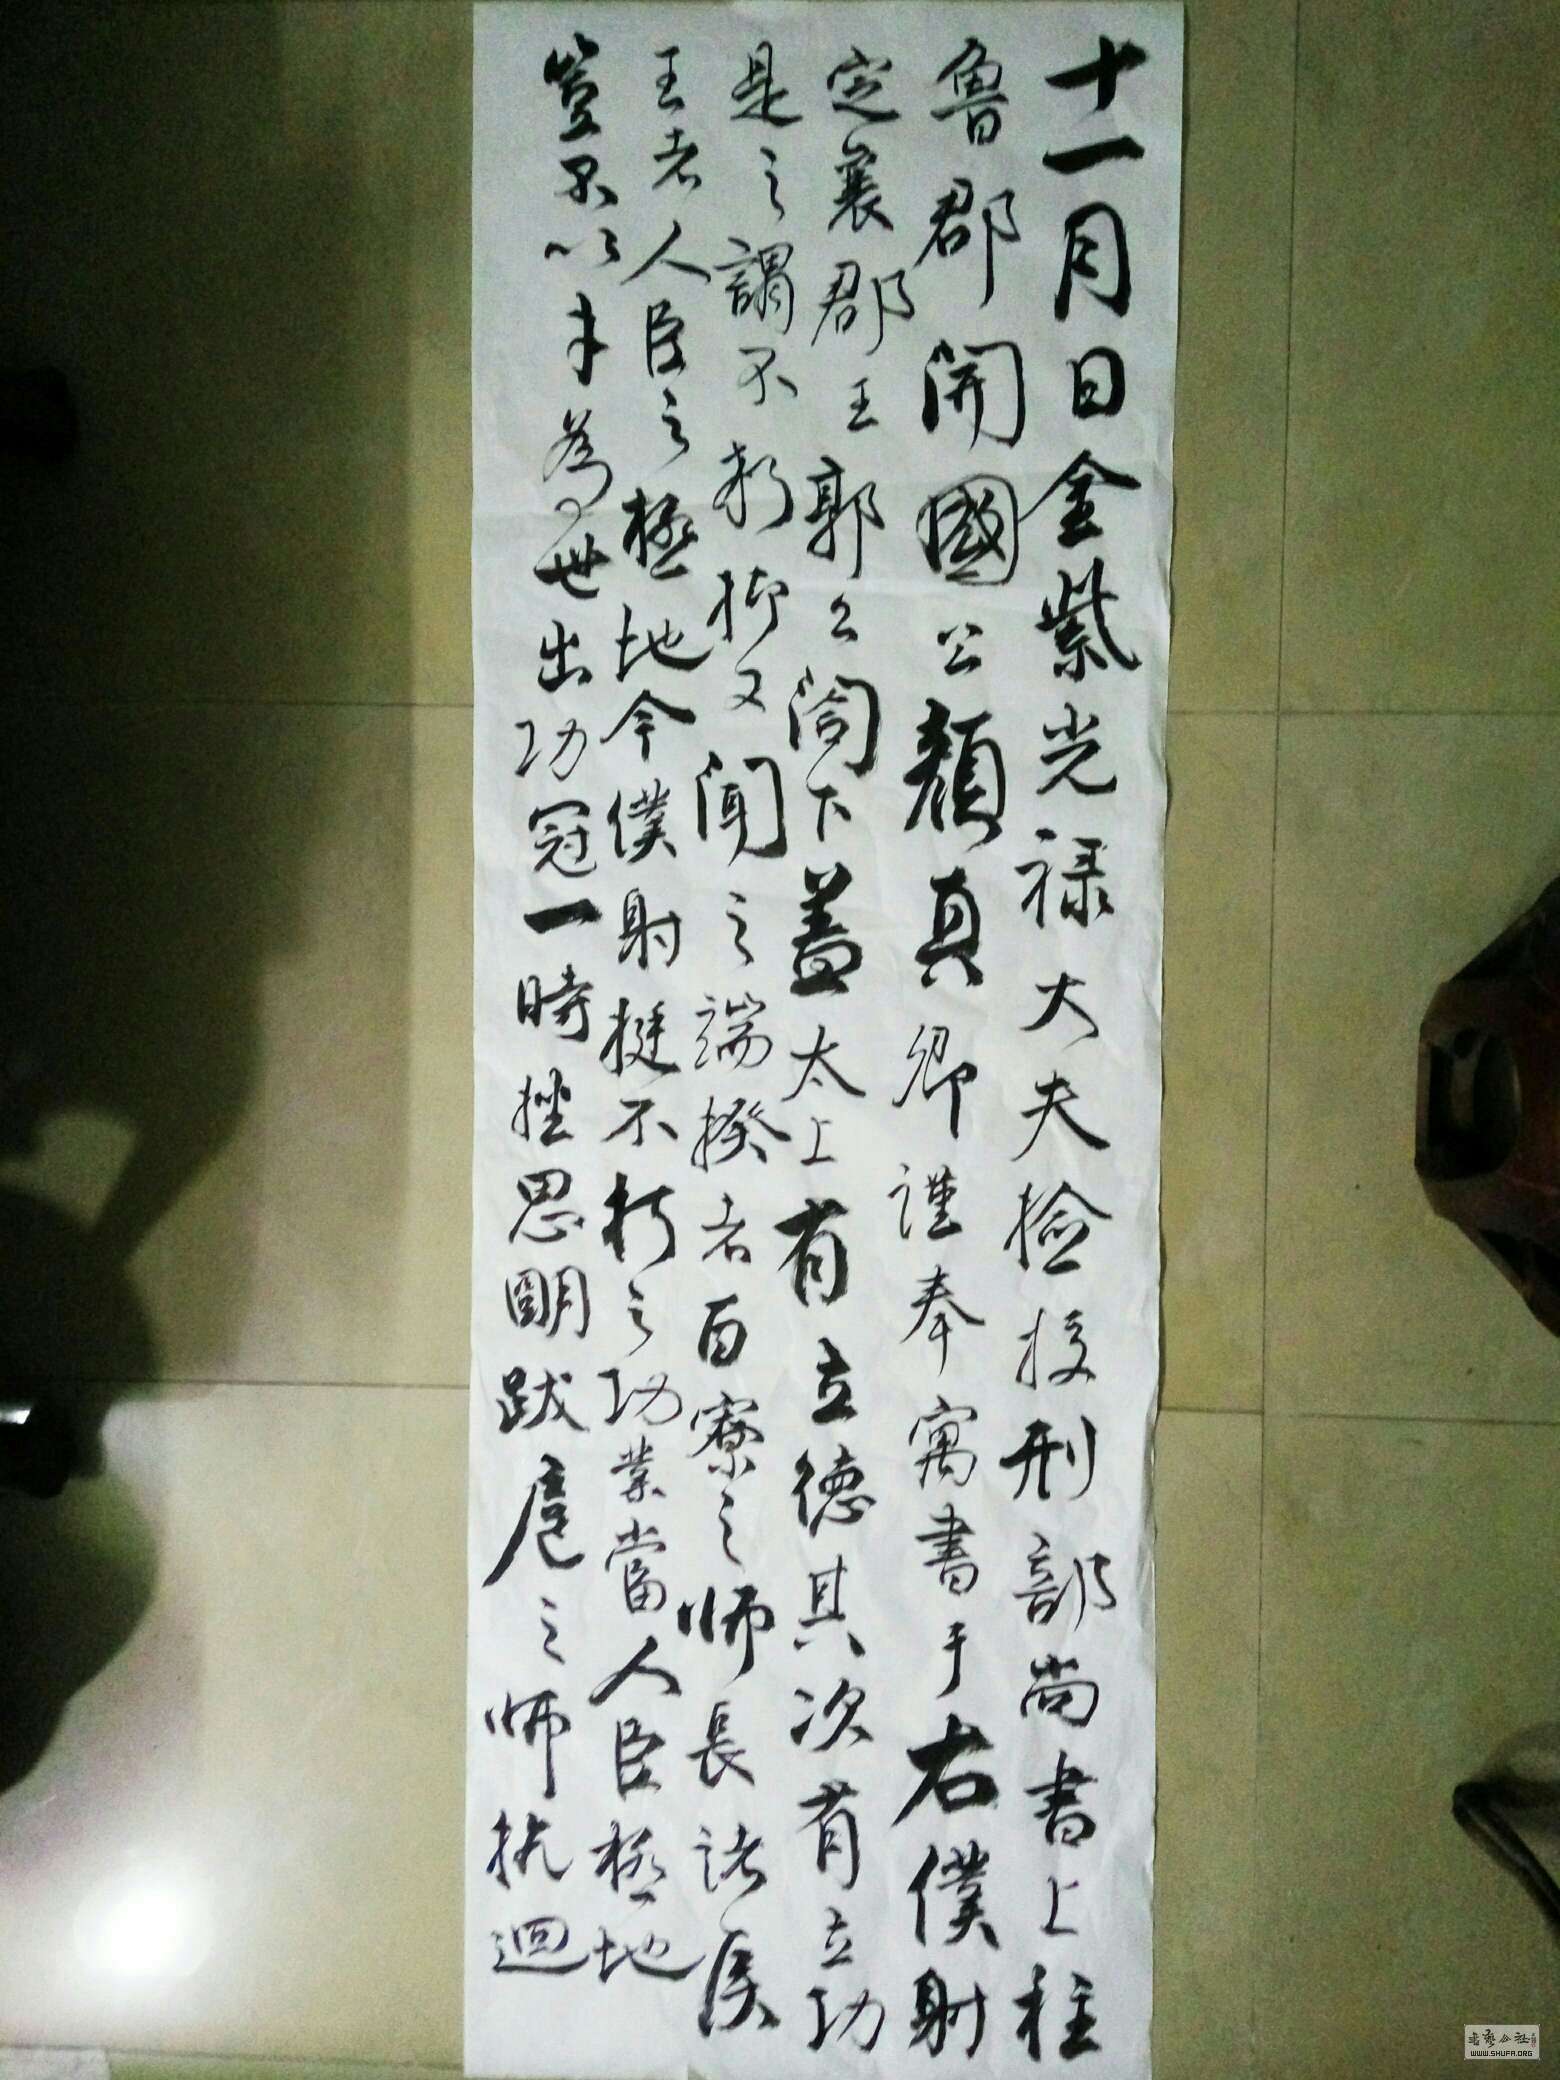 十一月日金紫光祿大夫檢挍刑部尚書上柱
魯郡開國公顏真卿謹奉寓書于右僕射
定襄郡王郭公閤下蓋太上有立德其次有立功
是之謂不朽抑又聞之端揆者百寮之師長諸侯
王者人臣之極地今僕射挺不朽之功業當人臣極地
豈不以才為世出功冠一時挫思明跋扈之師抗迴
书艺公社
WWW.SHUFA.ORG